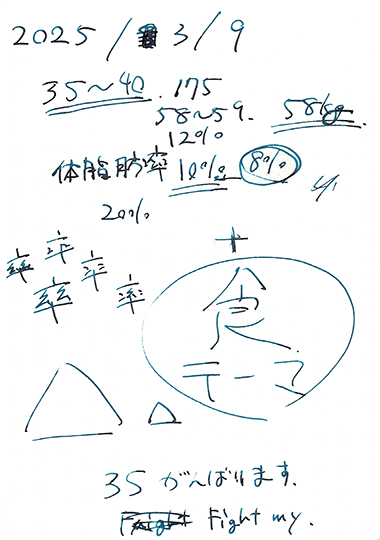 2025/3/9
35～40. 175
58～59. 58kg
12%
体脂肪率 10% 8%
20%
+
率 率 率 率 率
食
テーマ
35 がんばります.
Fight my.